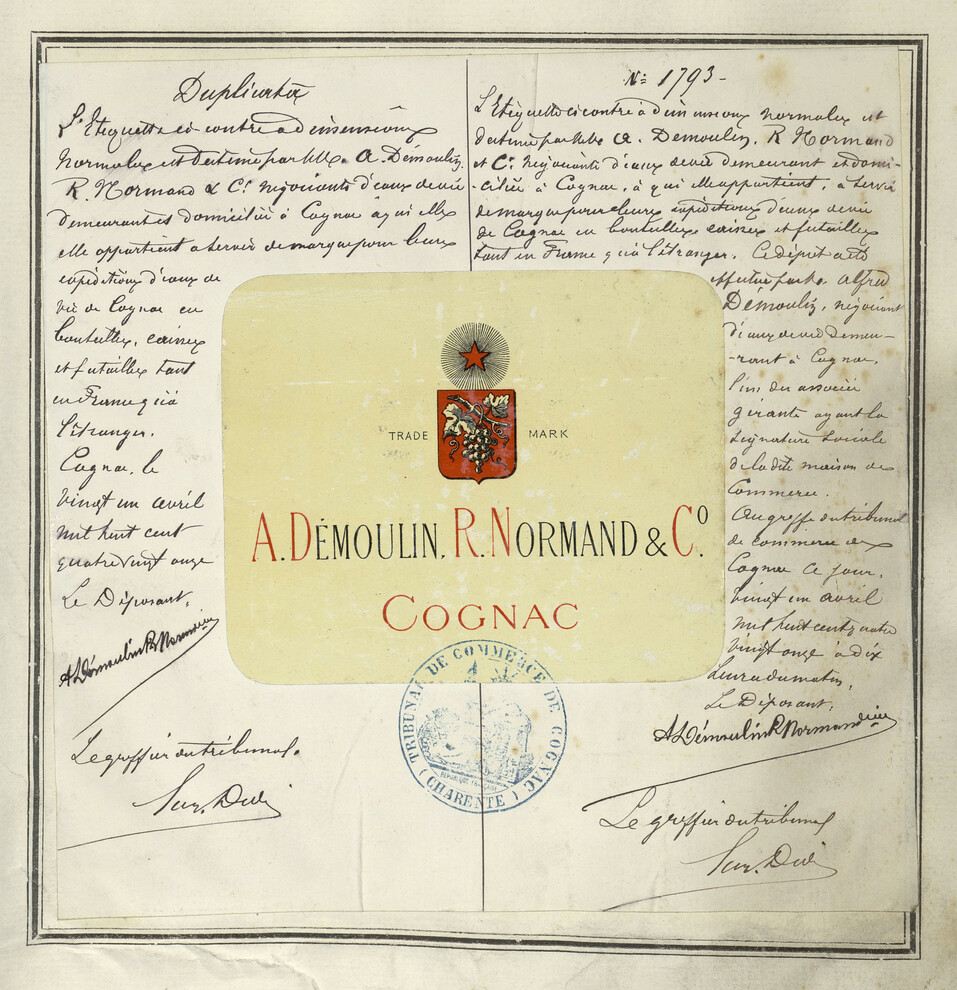 Duplicata
L'Etiquette ci-contre a dimensions
normales est destinée par MM. A. Démoulin,
R. Normand & Cie négociants d'eaux de vie
demeurant et domiciliés à Cognac à qui elle
elle appartient a servir de marque pour leurs
expéditions d'eaux de
vie de Cognac en
bouteilles, caisses
et futailles tant
en France qu'à
l'étranger.
Cognac, le
vingt un avril
mil huit cent
quatre vingt onze
Le Déposant,
A Démoulin R Normand & Cie
Le greffier du tribunal.
No: 1793-
L'Etiquette ci-contre a dimensions normales est
destinée par MM. A. Démoulin, R. Normand
et Cie négociants d'eaux de vie demeurant et domi-
-ciliés à Cognac, à qui elle appartient, a servir
de marque pour leurs expéditions d'eaux de vie
de Cognac en bouteilles caisses et futailles
tant en France qu'à l'étranger. Ce dépôt a été
effectué par M. Alfred
Démoulin, négociant
d'eaux de vie demeu-
-rant à Cognac,
l'un des associés
gérants ayant la
signature sociale
de la dite maison de
Commerce.
Au greffe du tribunal
de commerce de
Cognac ce jour,
vingt un avril
mil huit cent quatre
vingt onze a dix
heures du matin,
Le Déposant,
A Démoulin R Normand & Cie
Le greffier du tribunal
TRADE MARK
A. DÉMOULIN, R. NORMAND & Co.
COGNAC
TRIBUNAL DE COMMERCE DE COGNAC
(CHARENTE)
REPUBLIQUE FRANÇAISE